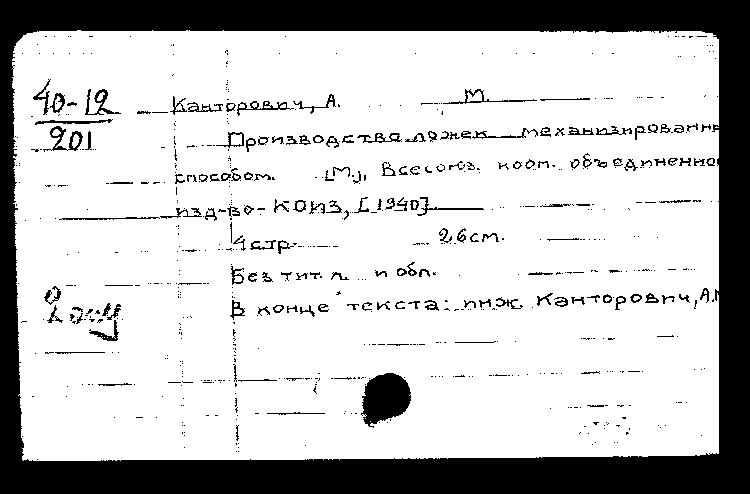 40-12
201
Канторович, А. М.
Производство ложек механизированны
способом. [М.], Всесоюз. кооп. объединенное
изд-во-КОИЗ, [1940].
4стр. 26см.
Без тит. л. и обл.
В конце текста: инж. Канторович, А.М